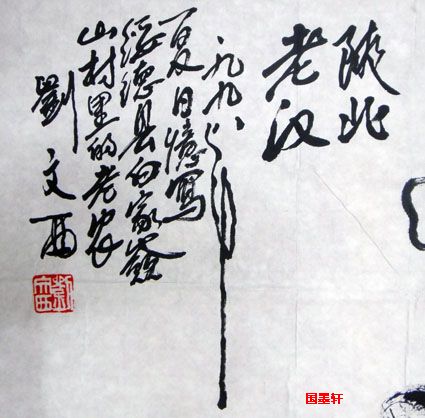 陕北
老汉
一九九八年
夏日憶寫
绥德县白家
山村里的老农
劉文西
国墨轩